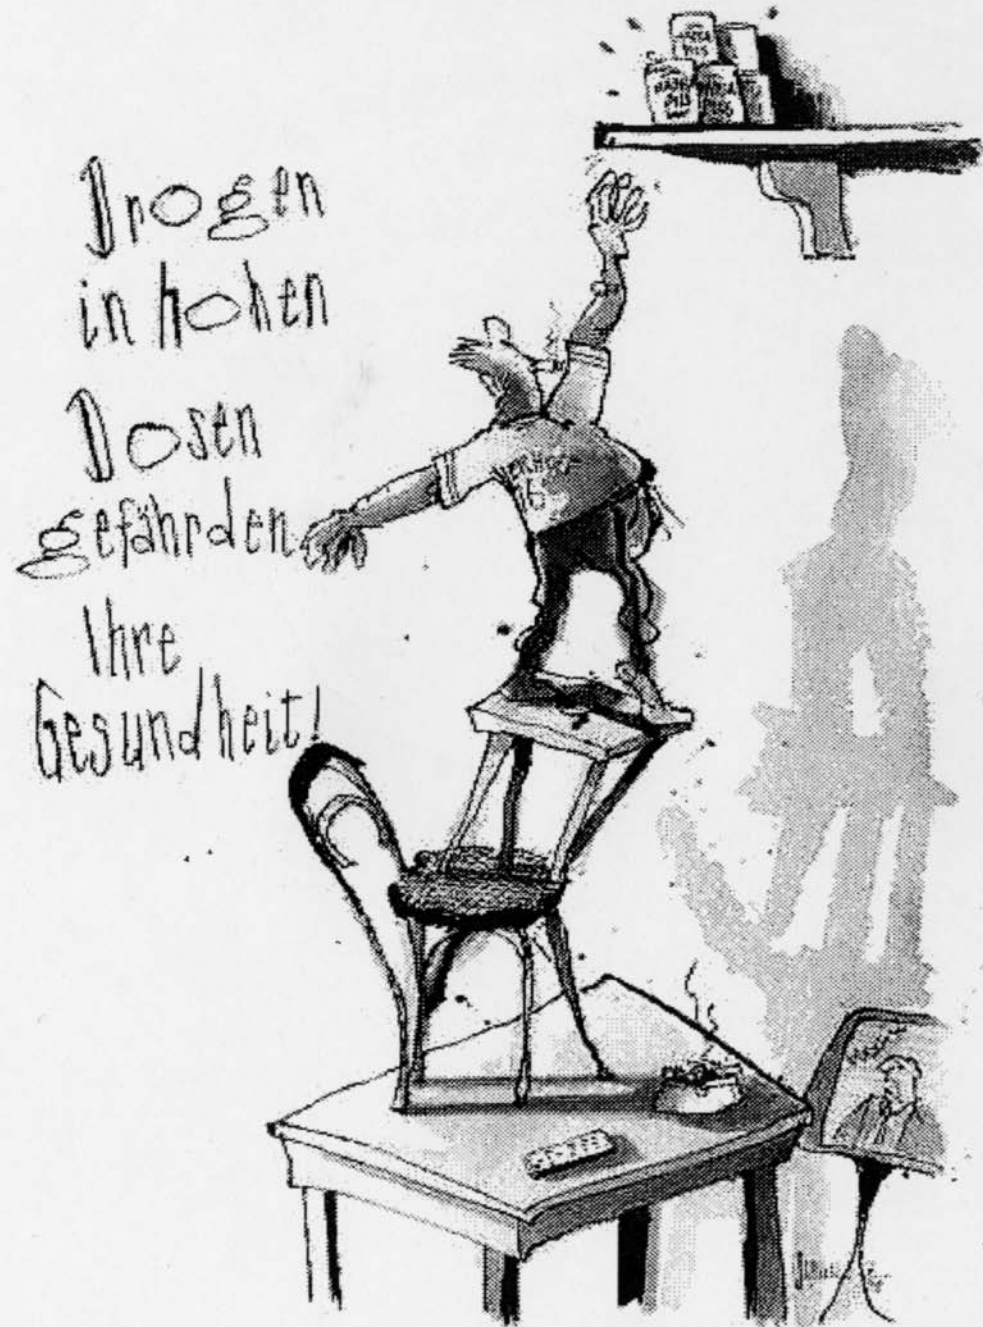 Drogen
in hohen
Dosen
gefährden
Ihre
Gesundheit!
PILS
PILS